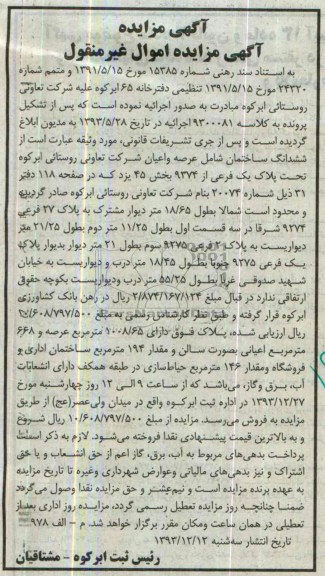 آگهی مزایده
آگهی مزایده اموال غیرمنقول
به استناد سند رهنی شماره ۱۵۳۸۵ مورخ ۱۳۹۱/۵/۱۵ و متمم شماره
۲۴۳۲۰ مورخ ۱۳۹۱/۵/۱۵ تنظیمی دفترخانه ۶۵ ابرکوه علیه شرکت تعاونی
روستائی ابرکوه مبادرت به صدور اجرائیه نموده است که پس از تشکیل
پرونده به کلاسه ۹۳۰۰۰۸۱ اجرائیه در تاریخ ۱۳۹۳/۵/۲۸ به مدیون ابلاغ
گردیده است و پس از جری تشریفات قانونی، مورد وثیقه عبارت است از
ششدانگ ساختمان شامل عرصه واعیان شرکت تعاونی روستائی ابرکوه
تحت پلاک یک فرعی از ۹۲۷۴ بخش ۴۵ یزد کـه در صفحه ۱۱۸ دفتر
۳۱ ذیل شماره ۲۰۰۷۴ بنام شرکت تعاونی روستائی ابرکوه صادر گردیده
و محدود است شمالا بطول ۱۸/۶۵ متر دیوار مشترک به پلاک ۲۷ فرعی
۹۲۷۴ شرقا در سه قسمت اول بطول ۱۱/۲۵ متر دوم بطول ۲۱/۲۵ متر
دیواریست به پلاک ۲ فرعی ۹۲۷۵ سوم بطول ۲۱ متر دیوار بدیوار پلاک
یک فرعی ۹۲۷۵ جنوبا بطول ۱۸/۴۵ متر درب و دیواریست به خیابان
شهید صدوقی غربا بطول ۵۵/۲۵ متر ودیواریست بکوچه حقوق
ارتفاقی ندارد در قبال مبلغ ۲/۸۷۴/۱۶۷/۱۲۴ ریال در رهن بانک کشاورزی
ابرکوه قرار گرفته و طبق نظر کارشناس رسمی به مبلغ ۱۰/۶۰۸/۷۹۷/۵۰۰
ریال ارزیابی شده، پـلاک فـوق دارای ۱۰۰۸/۶۵ مترمربع عرصه و ۶۶۸
مترمربـع اعیانی بصورت سالن و مقدار ۱۹۴ مترمربع ساختمان اداری و
فروشگاه ومقدار ۱۴۶ مترمربع حیاط‌سازی در طبقه همکف دارای انشعابات
آب، برق وگاز، می‌باشد که از ساعت ۹ الی ۱۲ روز چهارشنبه مورخ
۱۳۹۳/۱۲/۲۷ در اداره ثبت ابرکوه واقع در میدان ولی‌عصر(عج) از طریق
مزایده به فروش می‌رسد. مزایده از مبلغ ۱۰/۶۰۸/۷۹۷/۵۰۰ ریال شروع
و به بالاترین قیمت پیشنهادی نقدا فروخته می‌شود. لازم به ذکر است
پرداخت بدهی‌های مربوط به آب، برق، گاز اعم از حق انشعاب و یا حق
اشتراک و نیز بدهی‌های مالیاتی وعوارض شهرداری وغیره تا تاریخ مزایده
به عهده برنده مزایده است و نیم‌عشر و حق مزایده نقدا وصول می‌گردد
ضمنـا چنانچـه روز مزایده تعطیل رسمی گردد، مزایـده روز اداری بعد از
تعطیلی در همان ساعت ومکان مقرر برگزار خواهد شد. م - الف ۹۷۸
تاریخ انتشار سه‌شنبه ۱۳۹۳/۱۲/۱۲
رئیس ثبت ابرکوه - مشتاقیان